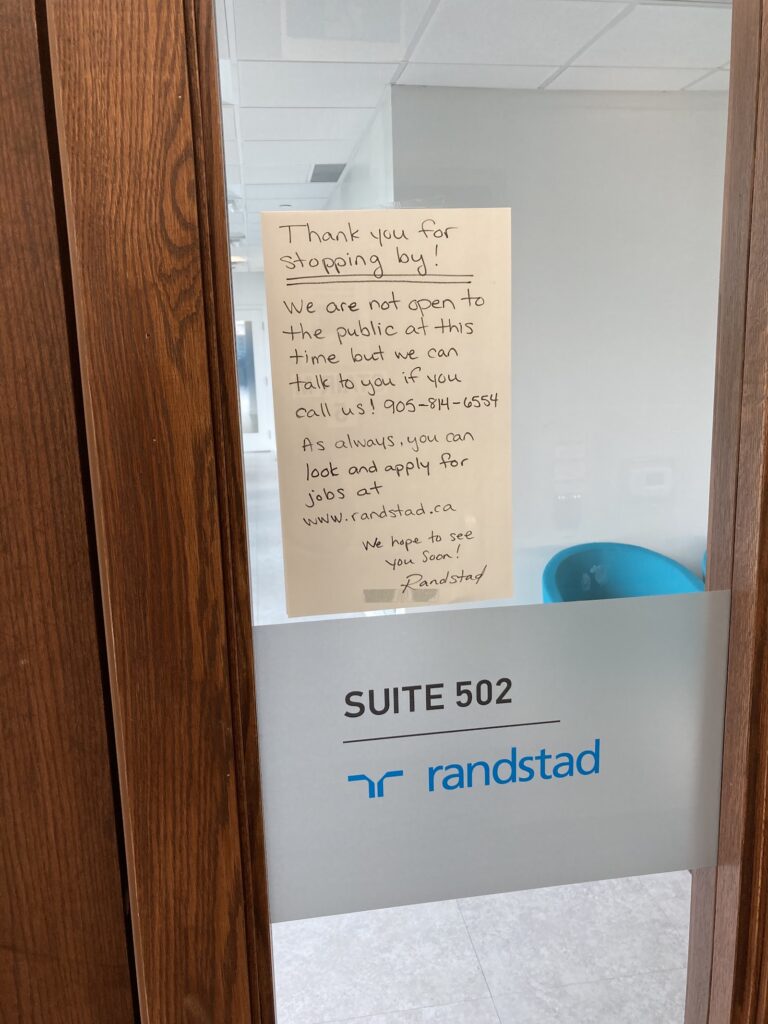 Thank you for
stopping by!
We are not open to
the public at this
time but we can
talk to you if you
call us! 905-814-6554
As always, you can
look and apply for
jobs at
www.randstad.ca
We hope to see
you soon!
Randstad
SUITE 502
randstad